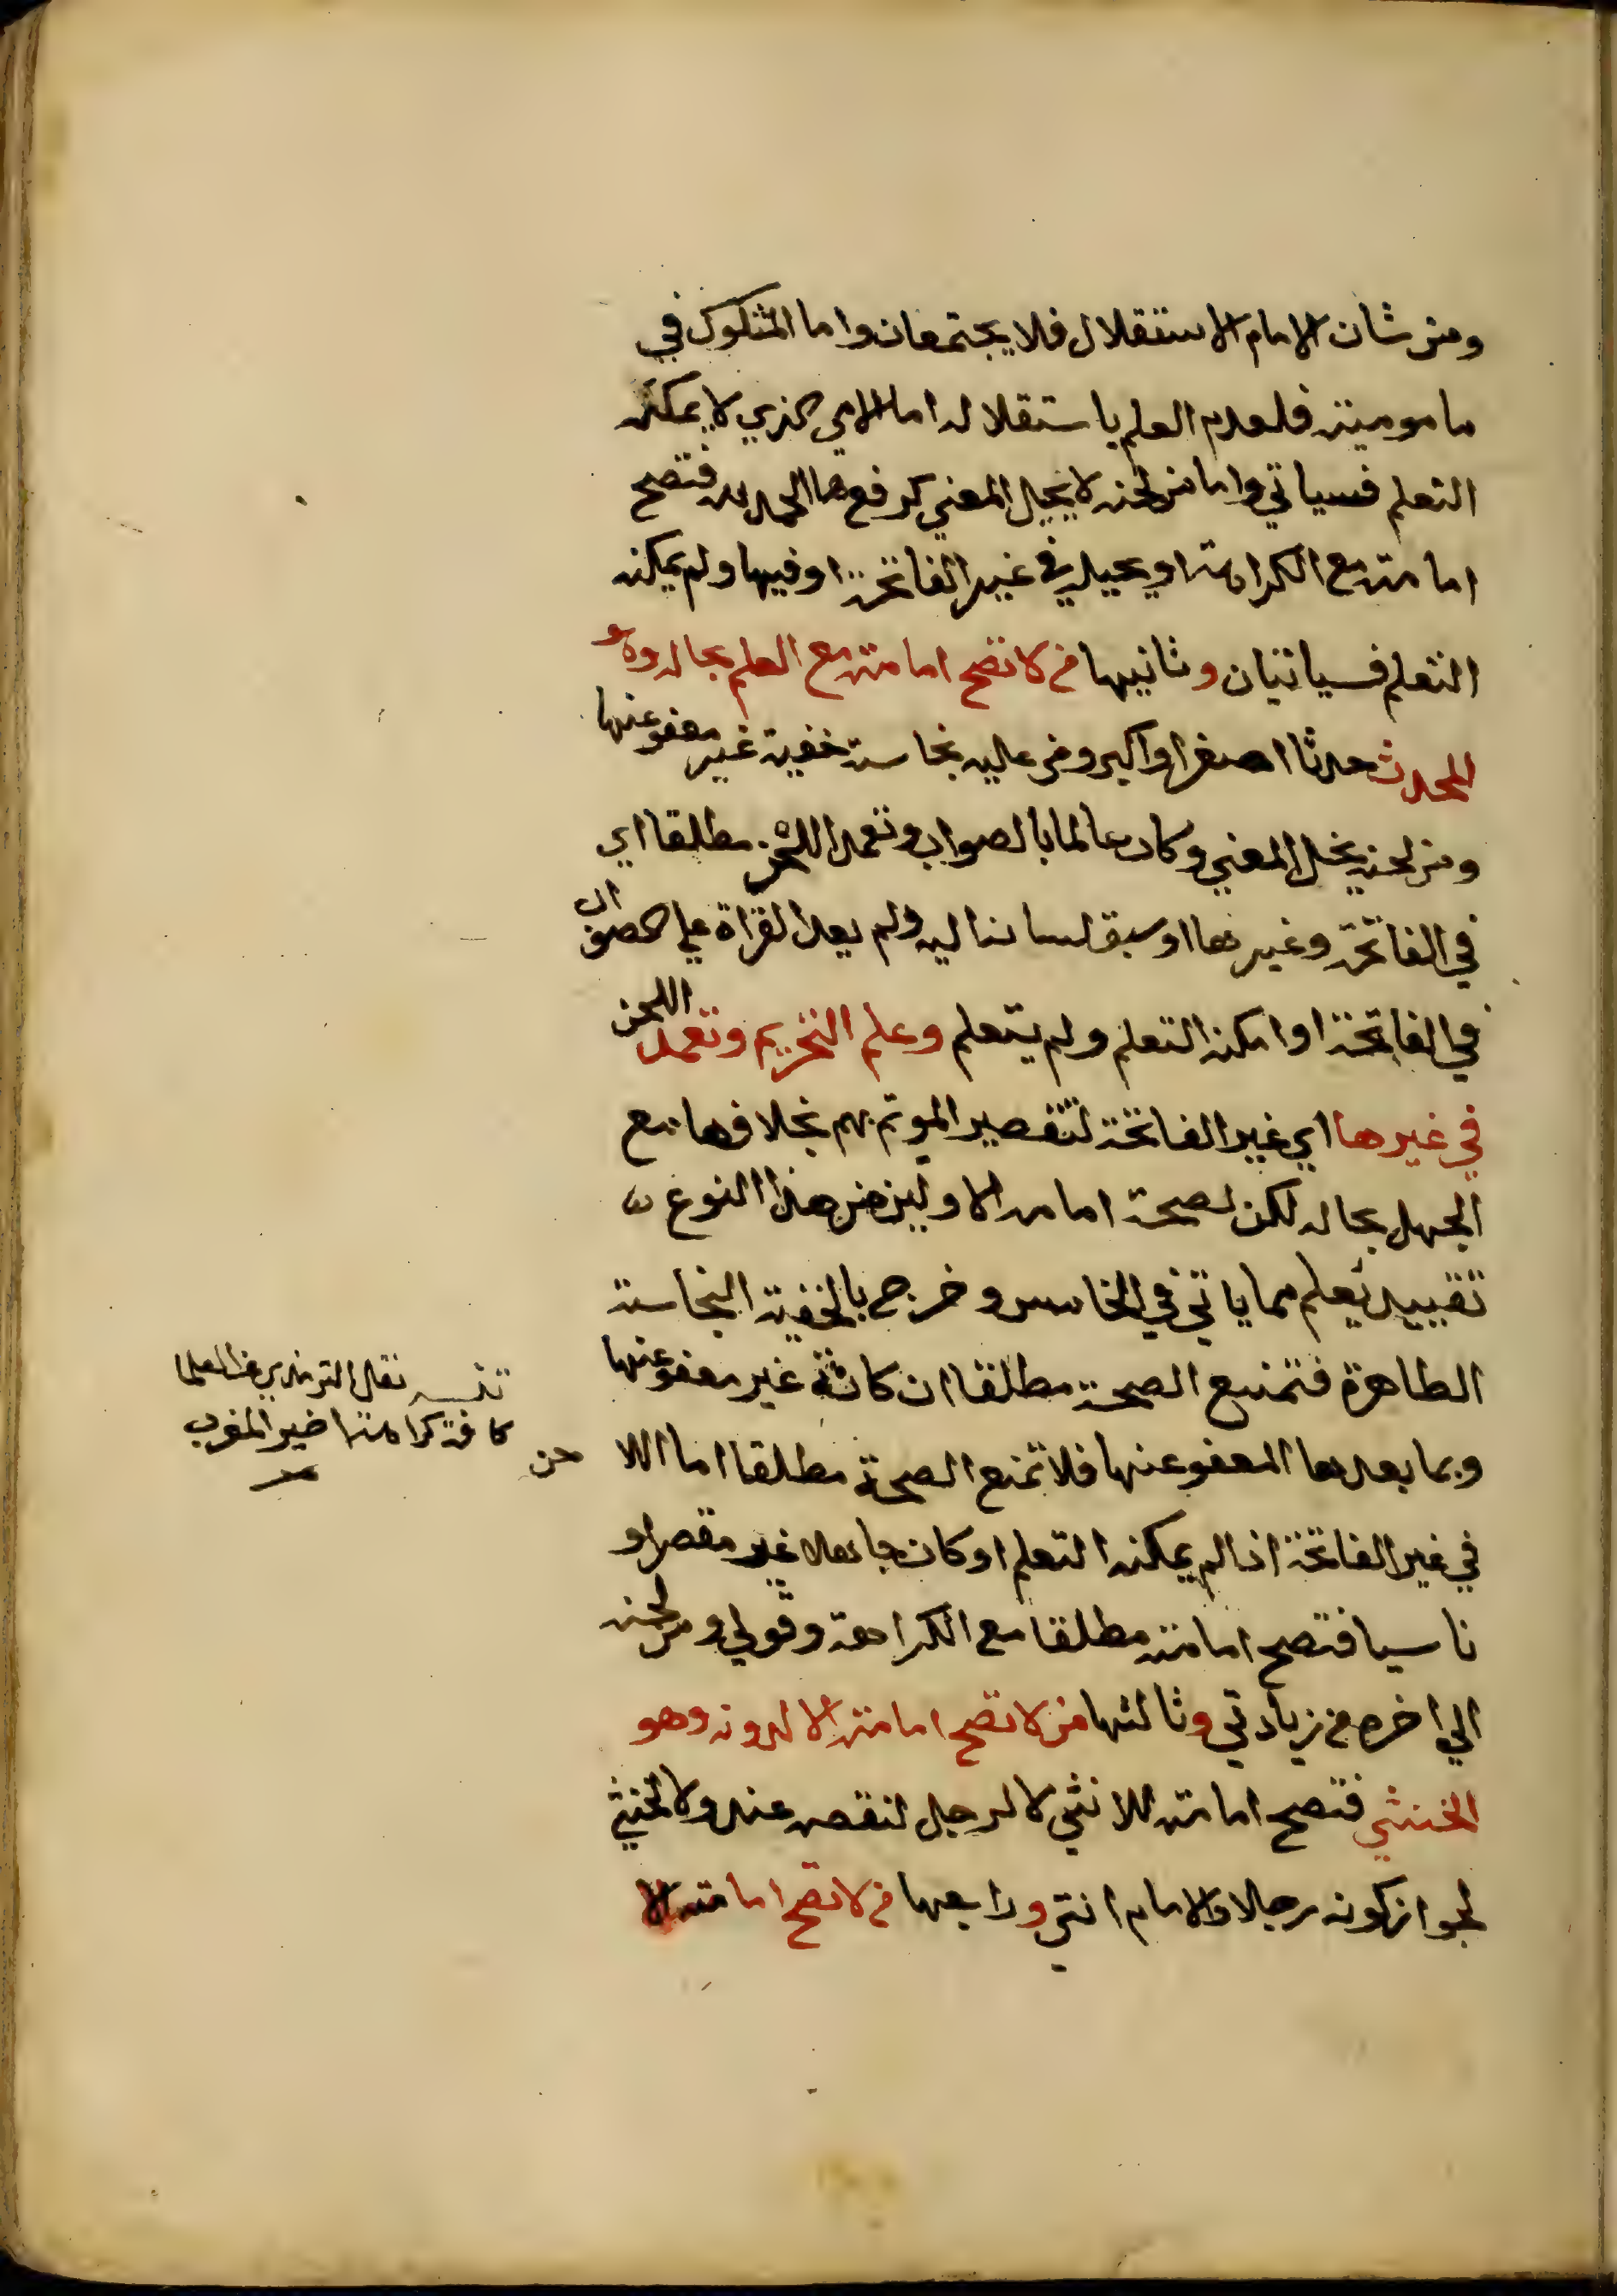 ومن شان الامام الاستقلال فلا يجتمعان واما المشكوك في
ماموميته فلعدم العلم باستقلاله اما الامي الذي لا يمكنه
التعلم فسياتي واما من لحنه لا يحيل المعني كرفع ها الحمد لله فتصح
امامته مع الكراهة او يحيله في غير الفاتحة او فيها ولم يمكنه
التعلم فسياتيان وثانيها من لا تصح امامته مع العلم بحاله وهو
المحدث حدثا اصغر او اكبر ومن عليه نجاسة خفية غير معفو عنها
ومن لحنه يخل المعني وكان عالما بالصواب وتعمد اللحن مطلقا اي
في الفاتحة وغيرها او سبق لسانه اليه ولم يعد القراة علي الصواب
في الفاتحة او امكنه التعلم ولم يتعلم وعلم التحريم وتعمد اللحن
في غيرها اي غير الفاتحة لتقصير الموتم بهم بخلافها مع
الجهل بحاله لكن لصحة امامة الاولين من هذا النوع
تقييد يعلم مما ياتي في الخامس وخرج بالخفية النجاسة
الطاهرة فتمنع الصحة مطلقا ان كانت غير معفو عنها
وبما بعدها المعفو عنها فلا تمنع الصحة مطلقا اما اللا
حن
في غير الفاتحة اذا لم يمكنه التعلم او كان جاهلا غير مقصر او
ناسيا فتصح امامته مطلقا مع الكراهة وقولي ومن لحنه
الي اخره من زيادتي وثالثها من لا تصح امامته الا لدونه وهو
الخنثي فتصح امامته للانثي لا لرجل لنقصه عنه ولا لخنثي
لجواز كونه رجلا والامام انثي ورابعها من لا تصح امامته الا
نقل الترمذي عن العلما
كافة كراهة تاخير المغرب